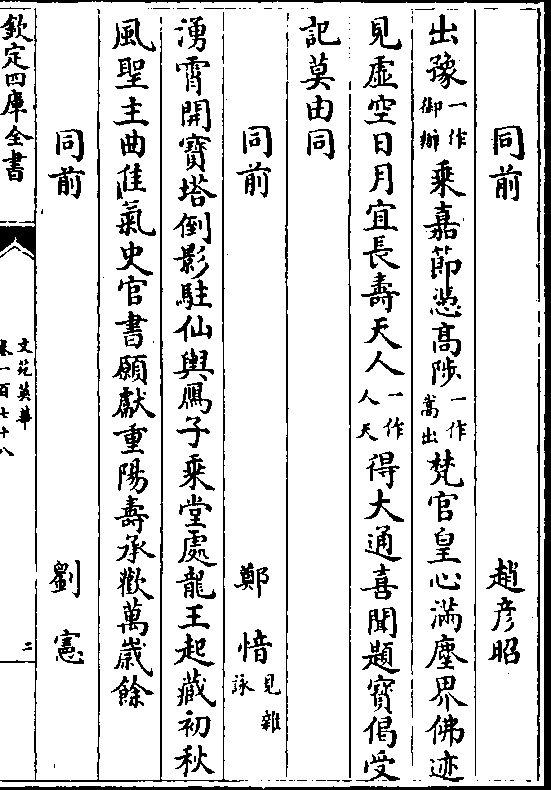 同前　趙彦昭
出豫一作御辦乘嘉節憑高陟一作嵩出梵官皇心滿塵界佛迹
見虛空日月宜長壽天人一作人天得大通喜聞題寳偈受
記莫由同
同前　鄭愔見雜詠
湧霄開寳塔倒影駐仙輿鴈子乘堂處龍王起藏初秋
風聖主曲佳氣史官書願獻重陽壽承歡萬歲餘
同前　劉憲
欽定四庫全書
文苑英華
卷一百七十八
二